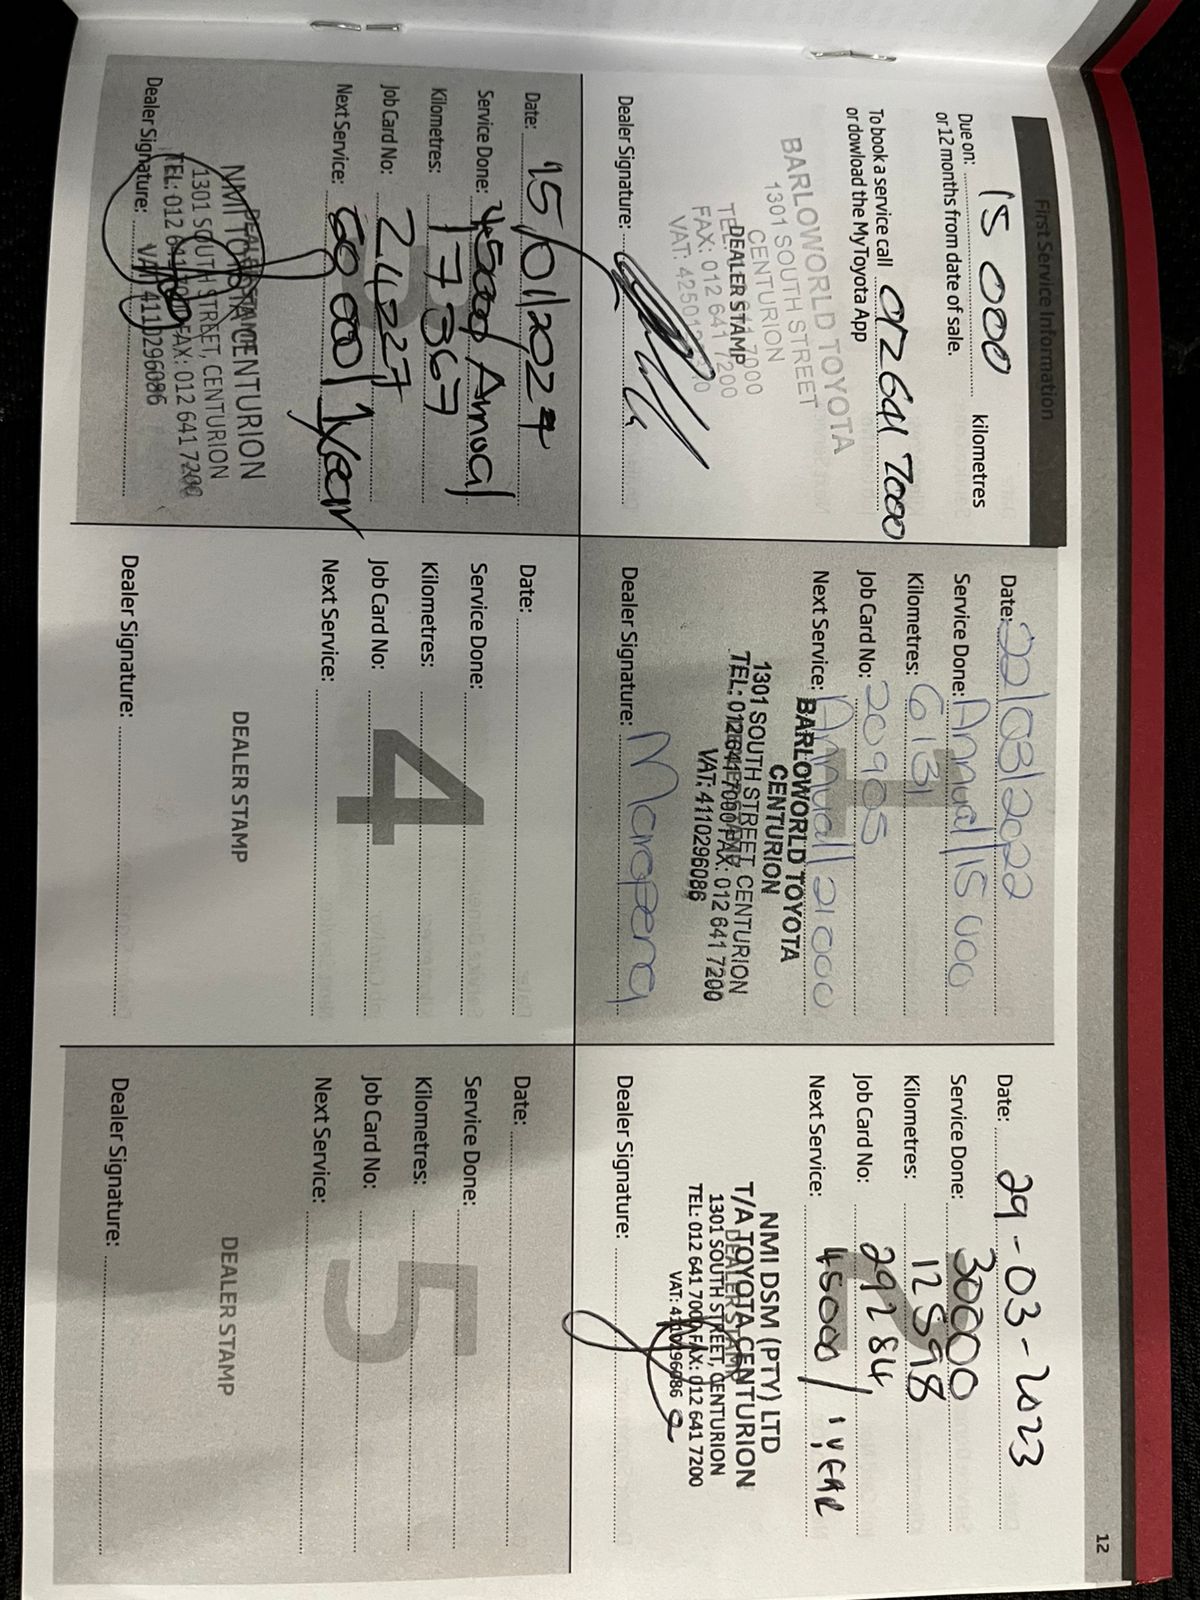 12
First Service Information
Due on: 15 000 kilometres
or 12 months from date of sale.
To book a service call 012 641 7000
or dowload the MyToyota App
BARLOWORLD TOYOTA
1301 SOUTH STREET
CENTURION
DEALER STAMP
TEL: 7000
FAX: 012 641 7200
VAT:
Dealer Signature:
1
Date: 22/03/2022
Service Done: Annual/15 000
Kilometres: 6131
Job Card No: 20905
Next Service: Annual/21000
BARLOWORLD TOYOTA
CENTURION
1301 SOUTH STREET, CENTURION
TEL: 012 641 7000 FAX: 012 641 7200
VAT: 4110296086
Dealer Signature:
2
Date: 29-03-2023
Service Done: 30000
Kilometres: 12598
Job Card No: 29284
Next Service: 45000/1 YEAR
NMI DSM (PTY) LTD
T/A TOYOTA CENTURION
DEALER STAMP
1301 SOUTH STREET, CENTURION
TEL: 012 641 7000 FAX: 012 641 7200
VAT: 4110296086
Dealer Signature:
3
Date: 15/01/2024
Service Done: 45000
Kilometres: 17367
Job Card No: 2427
Next Service: 60 000/1year
NMI TOYOTA CENTURION
1301 SOUTH STREET, CENTURION
TEL: 012 FAX: 012 641 7200
VAT 4110296086
Dealer Signature:
4
Date:
Service Done:
Kilometres:
Job Card No:
Next Service:
DEALER STAMP
Dealer Signature:
5
Date:
Service Done:
Kilometres:
Job Card No:
Next Service:
DEALER STAMP
Dealer Signature: